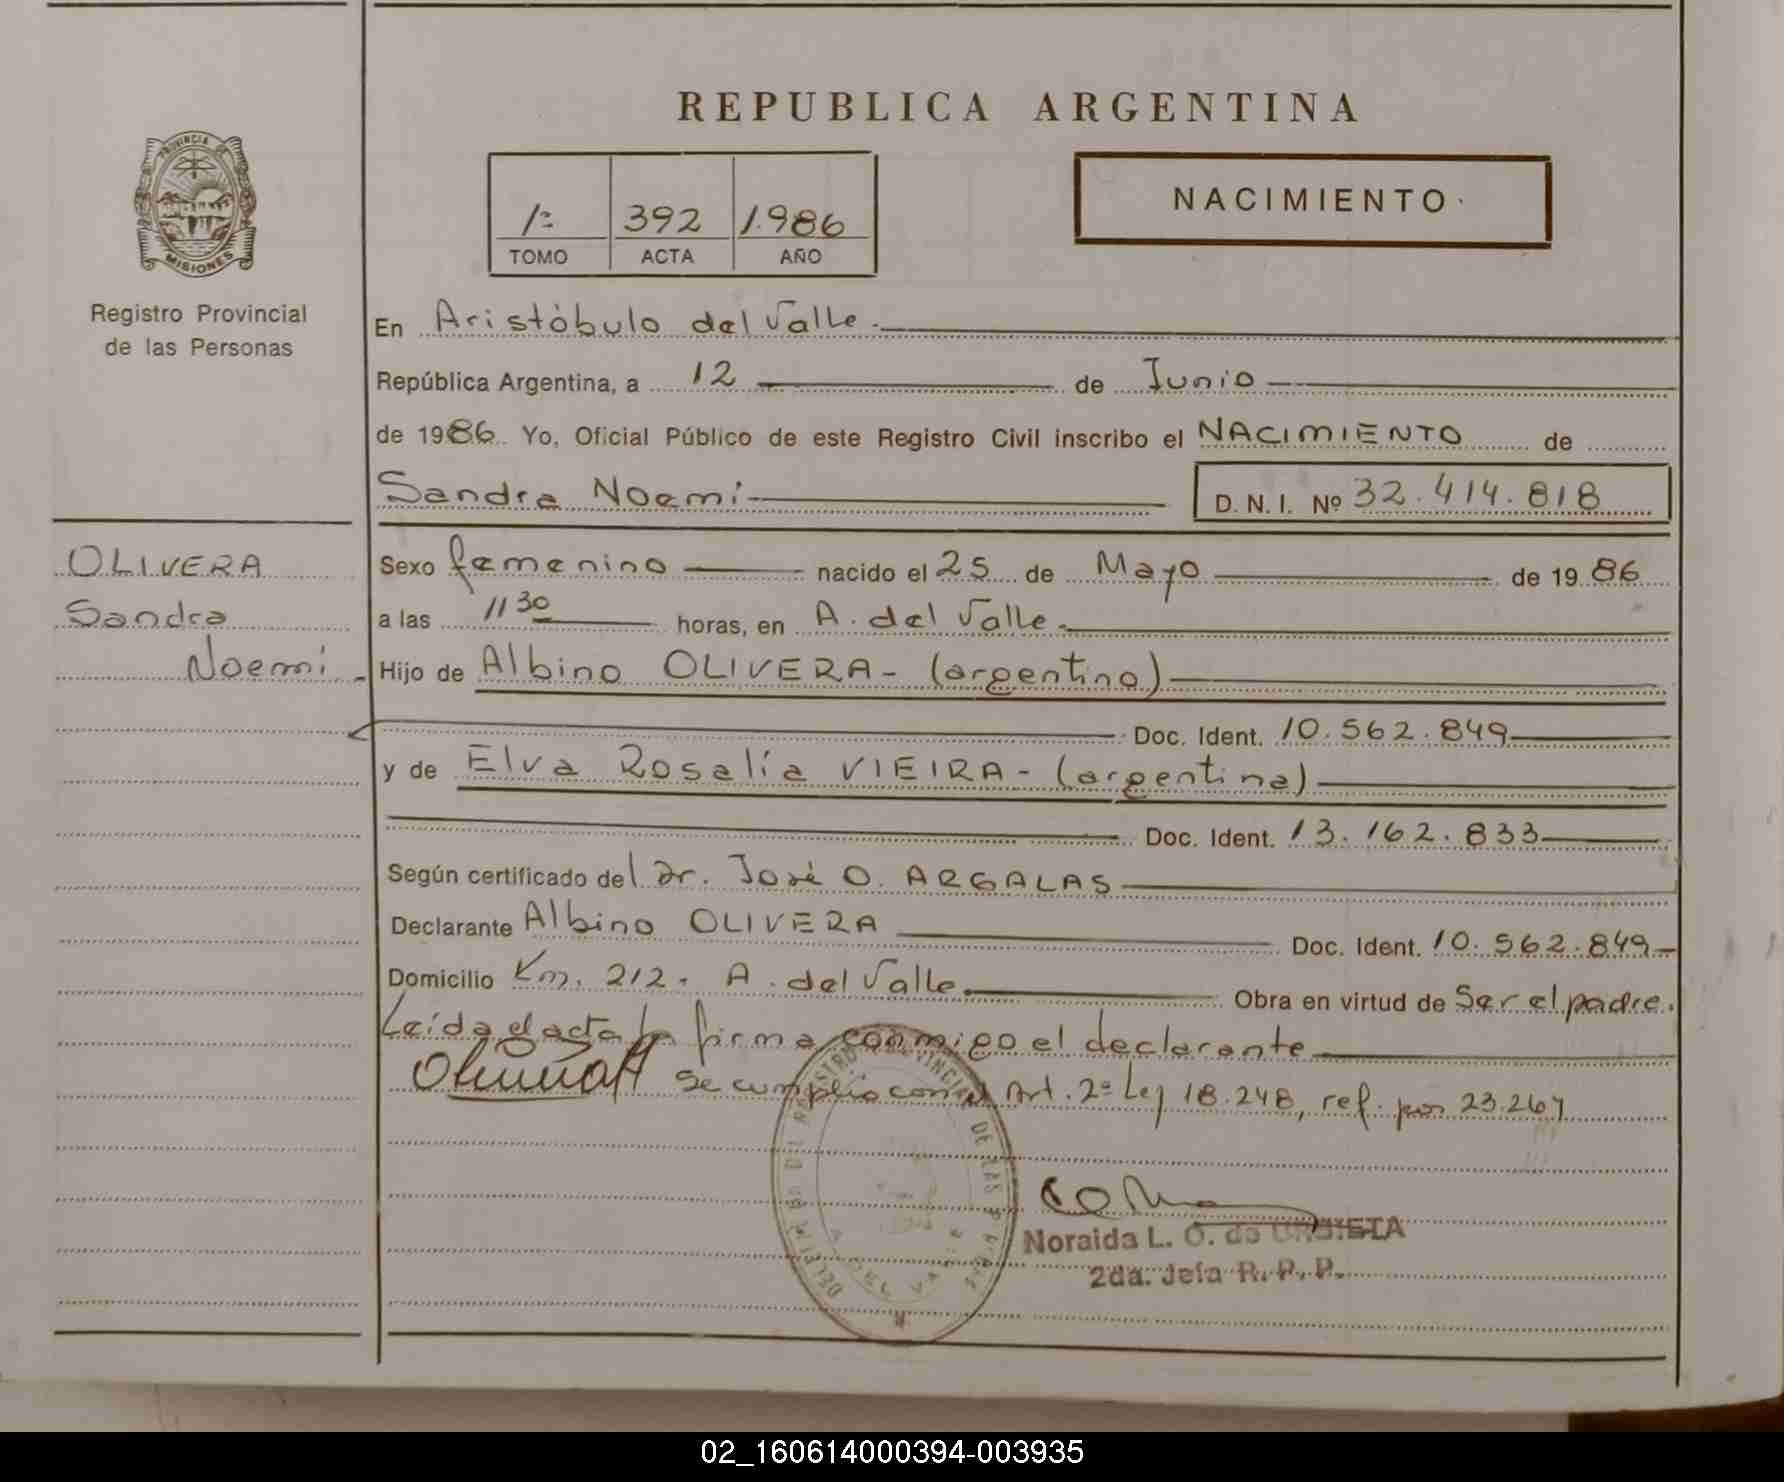 REPUBLICA ARGENTINA
PROVINCIA DE
MISIONES
Registro Provincial
de las Personas
1º 392 1.986
TOMO ACTA AÑO
NACIMIENTO
En Aristóbulo del Valle.
República Argentina, a 12 de Junio
de 1986. Yo, Oficial Público de este Registro Civil inscribo el NACIMIENTO de
Sandra Noemí D. N. I. Nº 32.414.818
OLIVERA
Sandra
Noemí.
Sexo femenino nacido el 25 de Mayo de 1986
a las 11 30 horas, en A. del Valle.
Hijo de Albino OLIVERA - (argentino)
Doc. Ident. 10.562.849
y de Elva Rosalía VIEIRA - (argentina)
Doc. Ident. 13.162.833
Según certificado del Dr. José O. ARGALAS
Declarante Albino OLIVERA Doc. Ident. 10.562.849
Domicilio Km. 212 - A. del Valle. Obra en virtud de Ser el padre.
Leída el acta la firma conmigo el declarante
Se cumplió con el Art. 2º Ley 18.248, ref. por 23.264
REGISTRO PROVINCIAL DE LAS
Noraida L. O. de URBIETA
2da. Jefa R. P. P.
02_160614000394-003935